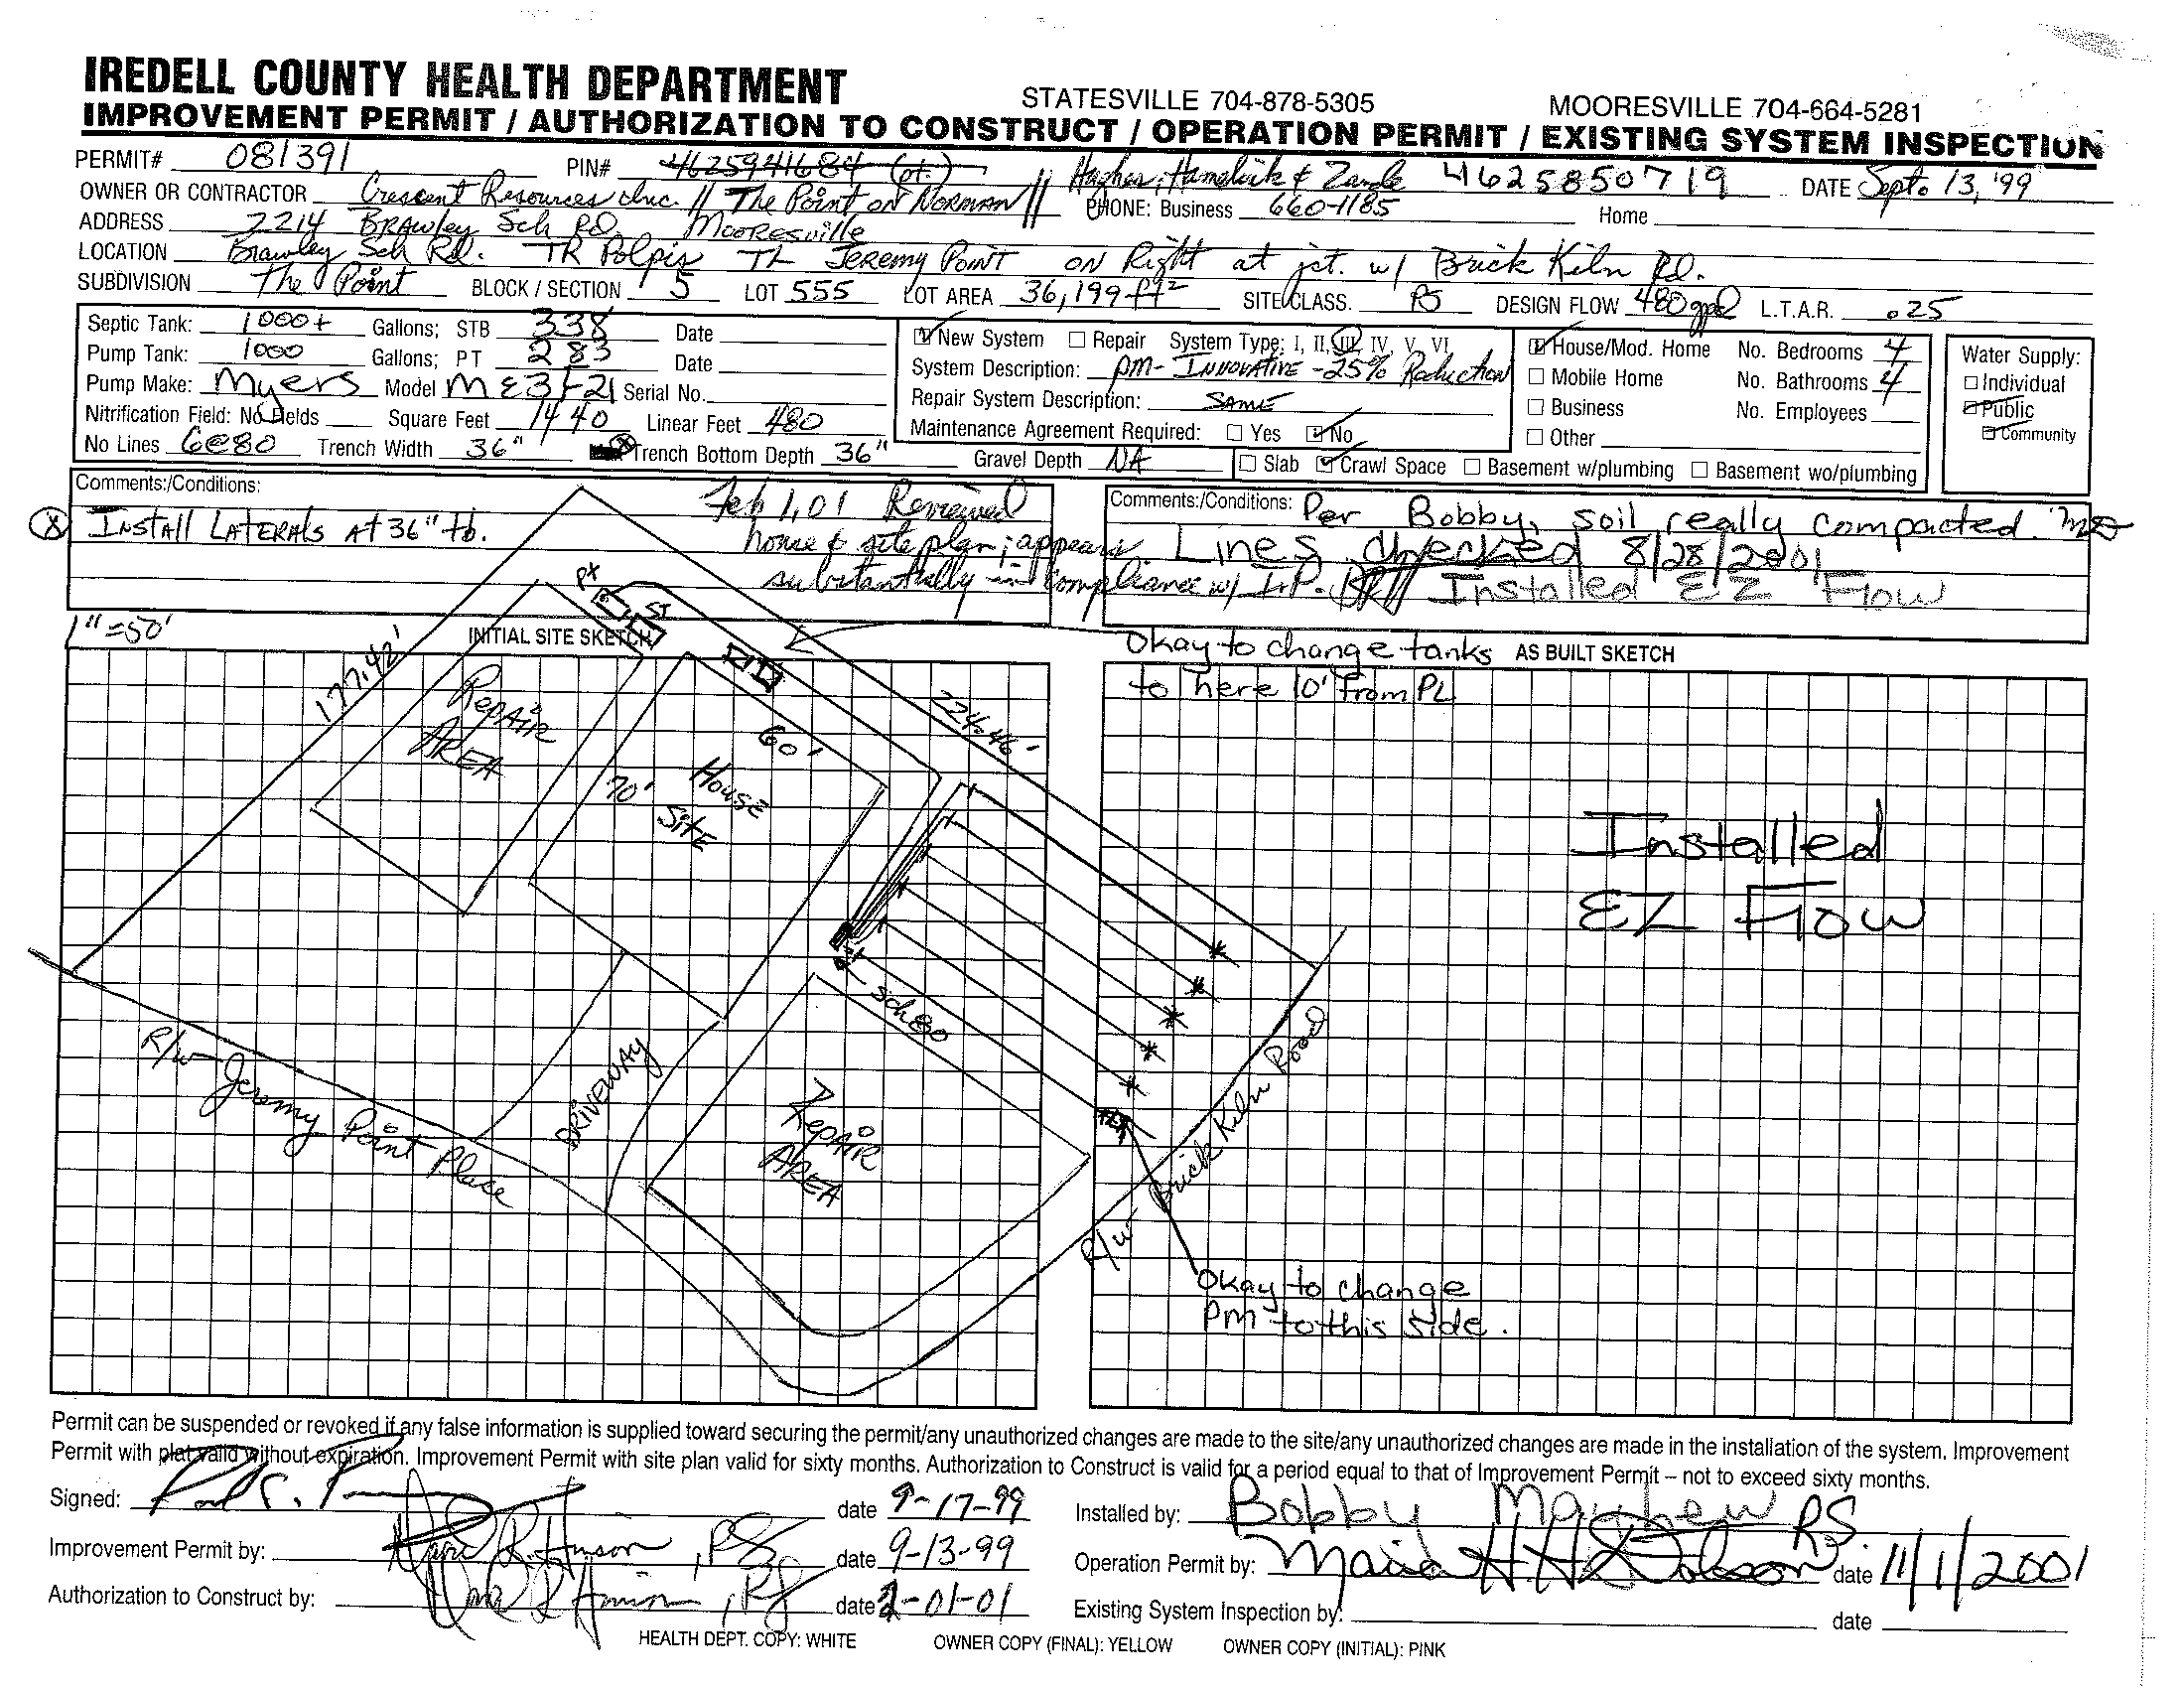 IREDELL COUNTY HEALTH DEPARTMENT STATESVILLE 704-878-5305 MOORESVILLE 704-664-5281
IMPROVEMENT PERMIT / AUTHORIZATION TO CONSTRUCT / OPERATION PERMIT / EXISTING SYSTEM INSPECTION
PERMIT# 081391 PIN# 4625941684 (pt.) Hughes, Hamelick & Zande 4625850719 DATE Sept. 13, '99
OWNER OR CONTRACTOR Crescent Resources Inc. // The Point on NORMAN // PHONE: Business 660-1185 Home
ADDRESS 2214 BRAWley Sch RD. MOORESville
LOCATION Brawley Sch Rd. TR Polpis TL Jeremy Point on Right at jct. w/ Brick Kiln Rd.
SUBDIVISION The Point BLOCK / SECTION 5 LOT 555 LOT AREA 36,199 ft² SITE CLASS. PS DESIGN FLOW 480 gpd L.T.A.R. .25
Septic Tank: 1000+ Gallons; STB 338 Date
Pump Tank: 1000 Gallons; PT 283 Date
Pump Make: Myers Model ME3F-21 Serial No.
Nitrification Field: No Fields Square Feet 1440 Linear Feet 480
No Lines 6@80 Trench Width 36" Trench Bottom Depth 36" Gravel Depth NA
New System Repair System Type: I, II, III, IV, V, VI
System Description: PM- INNOVATIVE -25% Reduction
Repair System Description: SAME
Maintenance Agreement Required: Yes No
House/Mod. Home No. Bedrooms 4
Mobile Home No. Bathrooms 4
Business No. Employees
Other
Slab Crawl Space Basement w/plumbing Basement wo/plumbing
Water Supply:
Individual
Public
Community
Comments:/Conditions:
INSTALL LATERALS AT 36" tb.
Feb 1, 01 Reviewed
house & site plan; appears
substantially in compliance w/ I.P.
Comments:/Conditions: Per Bobby, soil really compacted.
Lines checked 8/28/2001
Installed EZ Flow
1"=50' INITIAL SITE SKETCH
PT
ST
Okay to change tanks AS BUILT SKETCH
to here 10' from PL
177.42'
Repair
AREA
224.46'
60'
70'
House
Site
Installed
EZ Flow
Sch 80
R/W Jeremy Point Place
DRIVEWAY
Repair
AREA
R/W Brick Kiln Road
Okay to change
PM to this side.
Permit can be suspended or revoked if any false information is supplied toward securing the permit/any unauthorized changes are made to the site/any unauthorized changes are made in the installation of the system. Improvement
Permit with plat valid without expiration. Improvement Permit with site plan valid for sixty months. Authorization to Construct is valid for a period equal to that of Improvement Permit – not to exceed sixty months.
Signed: date 9-17-99 Installed by: Bobby Mayhew
Improvement Permit by: RS date 9-13-99 Operation Permit by: Maria H. RS. date 11/1/2001
Authorization to Construct by: RS date 2-01-01 Existing System Inspection by: date
HEALTH DEPT. COPY: WHITE OWNER COPY (FINAL): YELLOW OWNER COPY (INITIAL): PINK